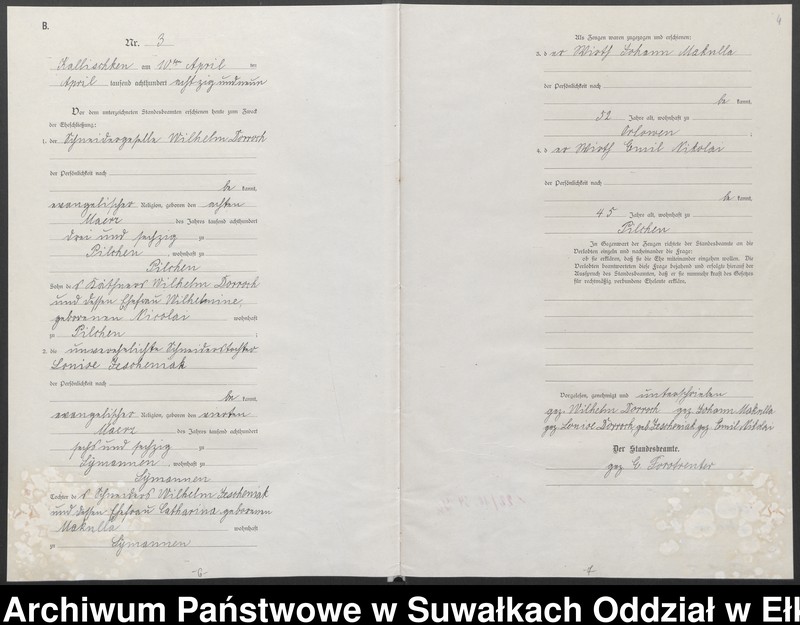 B.
Nr. 3
Kallischken am 10ten April
April tausend achthundert achtzig und neun
Vor dem unterzeichneten Standesbeamten erschienen heute zum Zweck
der Eheschließung:
1. der Schneidergeselle Wilhelm Dorroch
der Persönlichkeit nach
be kannt,
evangelischer Religion, geboren den achten
Maerz des Jahres tausend achthundert
drei und sechzig zu
Pilchen, wohnhaft zu
Pilchen
Sohn des Käthners Wilhelm Dorroch
und dessen Ehefrau Wilhelmine,
geborenen Nicolai wohnhaft
zu Pilchen ;
2. die unverehelichte Schneiderstochter
Louise Jescheniak
der Persönlichkeit nach
be kannt,
evangelischer Religion, geboren den vierten
Maerz des Jahres tausend achthundert
sechs und sechzig zu
Symannen, wohnhaft zu
Symannen
Tochter des Schneiders Wilhelm Jescheniak
und dessen Ehefrau Catharina geborenen
Makulla wohnhaft
zu Symannen
-6-
4
Als Zeugen waren zugezogen und erschienen:
3. der Wirth Johann Makulla
der Persönlichkeit nach
be kannt,
52 Jahre alt, wohnhaft zu
Orlowen ;
4. der Wirth Emil Nikolai
der Persönlichkeit nach
be kannt,
45 Jahre alt, wohnhaft zu
Pilchen
In Gegenwart der Zeugen richtete der Standesbeamte an die
Verlobten einzeln und nacheinander die Frage:
ob sie erklären, daß sie die Ehe miteinander eingehen wollen. Die
Verlobten beantworteten diese Frage bejahend und erfolgte hierauf der
Ausspruch des Standesbeamten, daß er sie nunmehr kraft des Gesetzes
für rechtmäßig verbundene Eheleute erkläre.
Vorgelesen, genehmigt und unterschrieben
gez. Wilhelm Dorroch gez. Johann Makulla
gez. Louise Dorroch geb. Jescheniak gez. Emil Nikolai
Der Standesbeamte.
gez. C.
Archiwum Państwowe w Suwałkach Oddział w Ełk